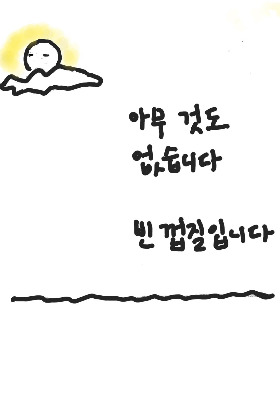 아무 것도
없습니다
빈 껍질입니다